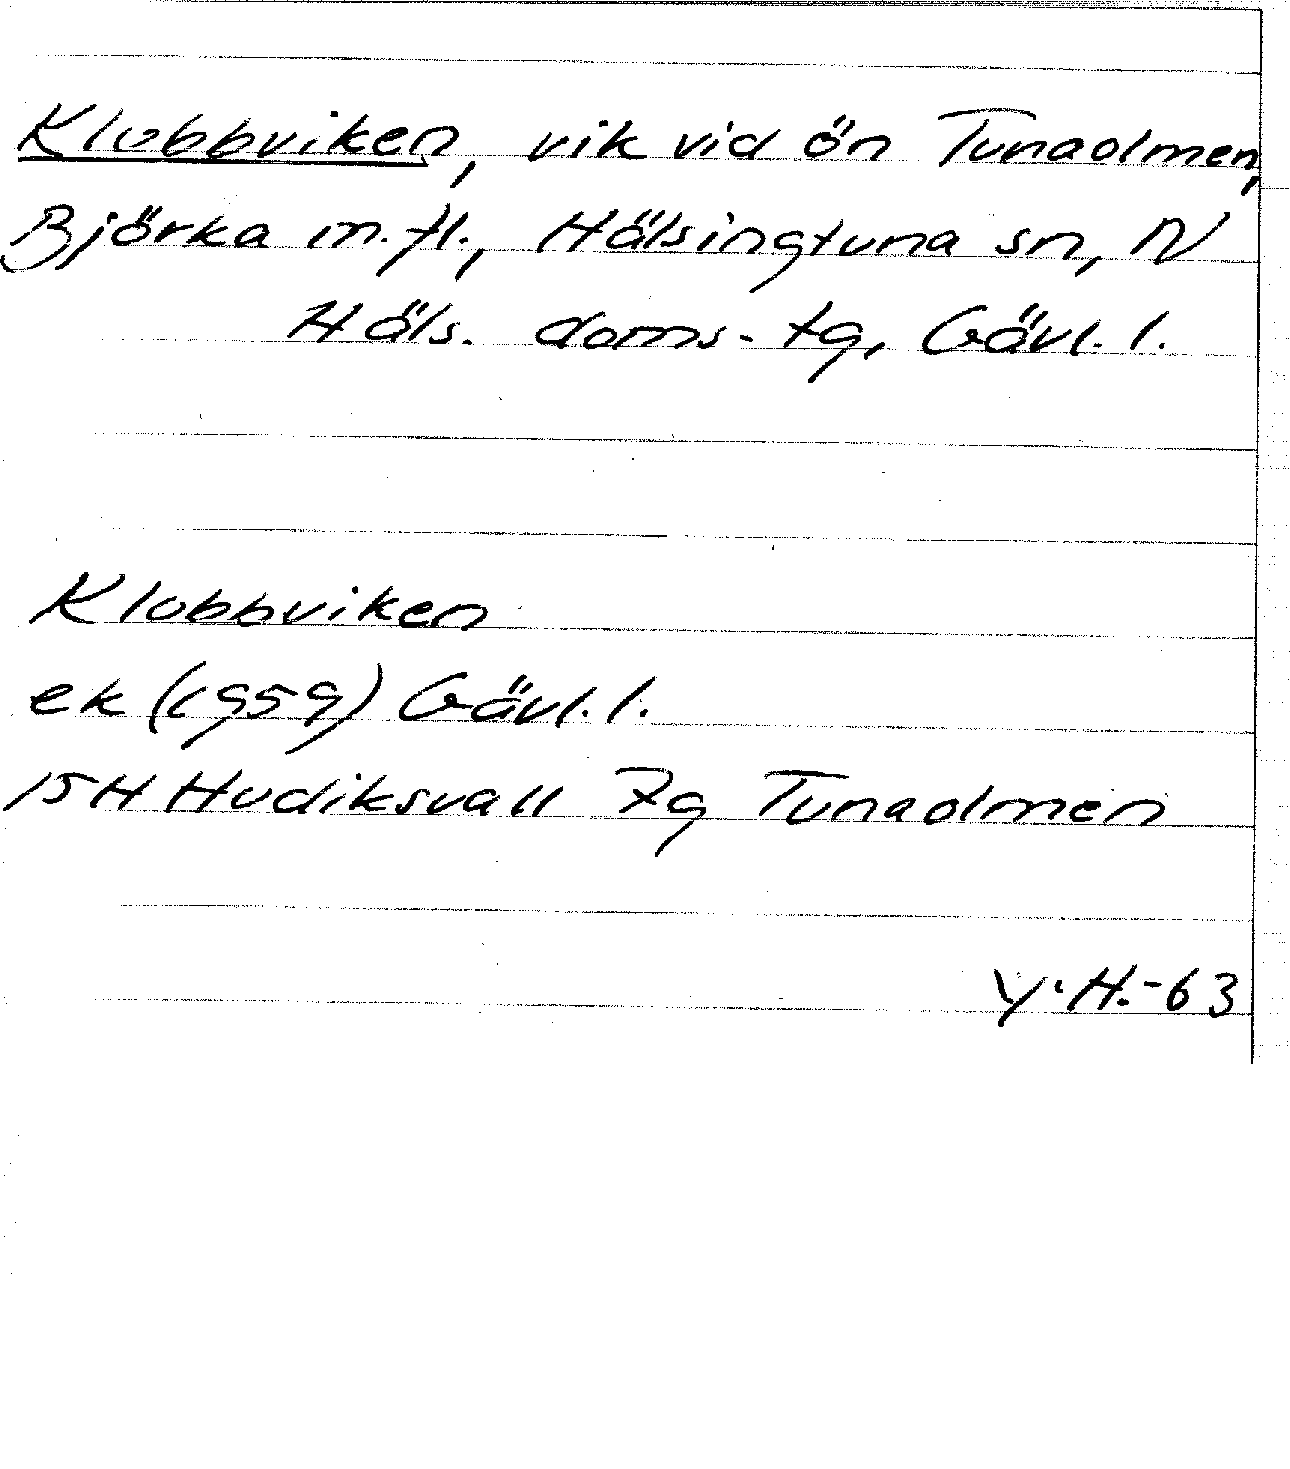 Klubbviken, vik vid ön Tunaolmen,
Björka m.fl., Hälsingtuna sn, N
Häls. doms.tg, Gävl.l.
Klubbviken
ek (1959) Gävl.l.
15H Hudiksvall 7g Tunaolmen
Y.H.-63